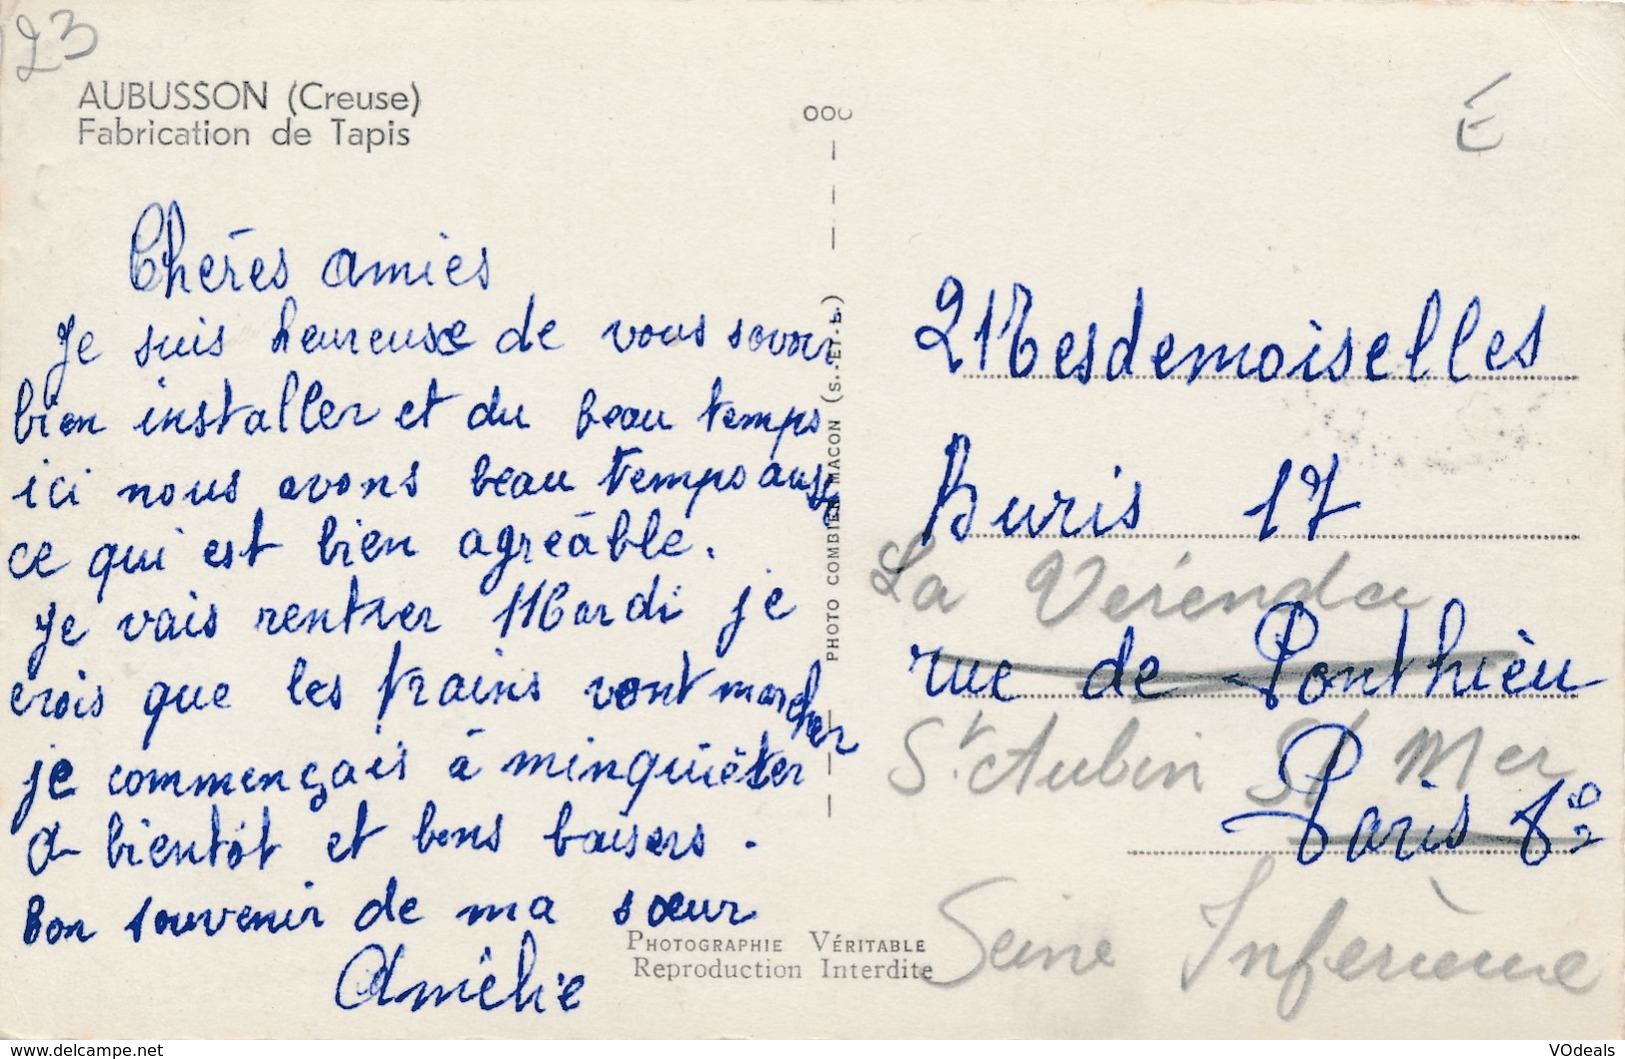 23
AUBUSSON (Creuse)
Fabrication de Tapis
Chères amies
Je suis heureuse de vous savoir
bien installer et du beau temps
ici nous avons beau temps aussi
ce qui est bien agréable.
Je vais rentrer Mardi je
crois que les trains vont marcher
je commençais à minquiéter
a bientôt et bons baisers.
Bon souvenir de ma sœur
Amélie
PHOTO COMBIER MACON (S.-ET-L.)
PHOTOGRAPHIE VÉRITABLE
Reproduction Interdite
É
Mesdemoiselles
Buris 17
La
rue de Ponthièu
St. Aubin S/ Mer
Paris 8e
Seine Inferieure
www.delcampe.net
VOdeals